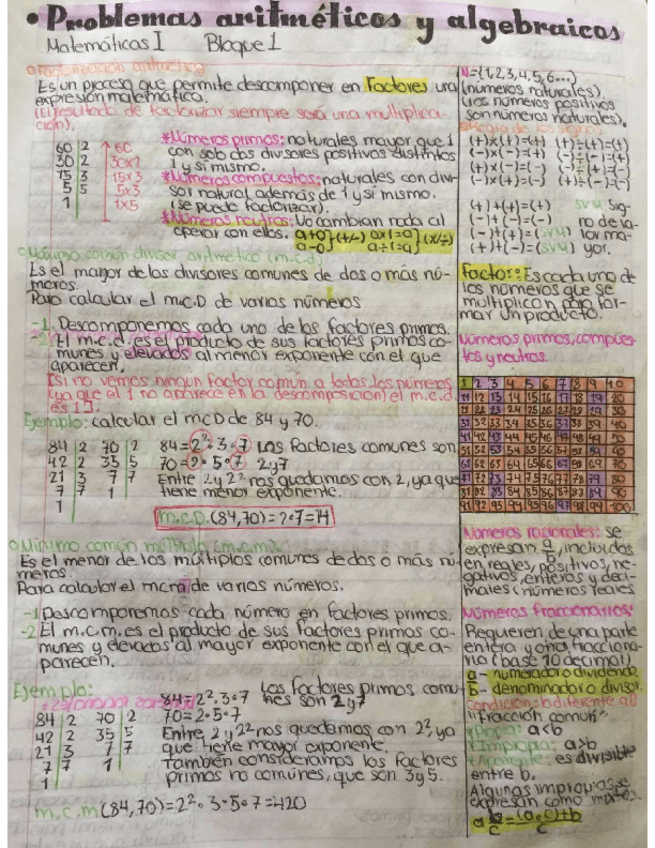 • Problemas aritméticos y algebraicos
Matemáticas I Bloque 1
Factorización aritmética
Es un proceso que permite descomponer en Factores una
expresión matemática.
(El resultado de factorizar siempre será una multiplica-
ción).
60 | 2 60
30 | 2 30x2
15 | 3 15x3
5 | 5 5x3
1 1x5
*Números primos: naturales mayor que 1
con solo dos divisores positivos distintos
1 y si mismo.
*Números compuestos: naturales con divi-
sor natural además de 1 y si mismo.
(se puede factorizar).
*Números neutros: No cambian nada al
operar con ellos. a+0 } (+/-) a x 1=a } (x/÷)
a-0 a÷1=a
Máximo común divisor aritmético (m.c.d)
Es el mayor de los divisores comunes de dos o más nú-
meros.
Para calcular el m.c.D de varios números
-1. Descomponemos cada uno de los factores primos.
-2 El m.c.d. es el producto de sus factores primos co-
munes y elevados al menor exponente con el que
aparecen.
[si no vemos ningun factor comun a todos los números
(ya que el 1 no aparece en la descomposición) el m.c.d.
es 1].
Ejemplo: calcular el mcD de 84 y 70.
84 | 2 70 | 2
42 | 2 35 | 5
21 | 3 7 | 7
7 | 7 1
1
84=2²·3·7 Los factores comunes son
70=2·5·7 2 y 7
Entre 2 y 2² nos quedamos con 2, ya que
tiene menor exponente.
m.c.D.(84,70)=2·7=14
Mínimo común múltiplo (m.c.m).
Es el menor de los múltiplos comunes de dos o más nú-
meros.
Para calcular el mcm de varios números.
-1 Descomponemos cada número en factores primos.
-2 El m.c.m. es el producto de sus factores primos co-
munes y elevados al mayor exponente con el que a-
parecen.
Ejemplo:
84 | 2 70 | 2
42 | 2 35 | 5
21 | 3 7 | 7
7 | 7 1
1
84=2²·3·7 Los factores primos comu-
70=2·5·7 nes son 2 y 7
Entre 2 y 2² nos quedamos con 2², ya
que tiene mayor exponente.
También consideramos los factores
primos no comunes, que son 3 y 5.
m.c.m(84,70)=2²·3·5·7=420
N={1,2,3,4,5,6...}
(números naturales).
(los números positivos
son números naturales).
*Regla de los signos
(+)x(+)=(+) (+)÷(+)=(+)
(-)x(-)=(+) (-)÷(-)=(+)
(+)x(-)=(-) (-)÷(+)=(-)
(-)x(+)=(-) (+)÷(-)=(-)
(+)+(+)=(+) SVM sig-
(-)+(-)=(-) no de va-
(-)+(+)=(SVM) lor ma-
(+)+(-)=(SVM) yor.
Factor: Es cada uno de
los números que se
multiplican para for-
mar un producto.
Números primos, compues-
tos y neutros.
1 2 3 4 5 6 7 8 9 10
11 12 13 14 15 16 17 18 19 20
21 22 23 24 25 26 27 28 29 30
31 32 33 34 35 36 37 38 39 40
41 42 43 44 45 46 47 48 49 50
51 52 53 54 55 56 57 58 59 60
61 62 63 64 65 66 67 68 69 70
71 72 73 74 75 76 77 78 79 80
81 82 83 84 85 86 87 88 89 90
91 92 93 94 95 96 97 98 99 100
Números racionales: se
expresan a/b, incluidos
en reales, positivos, ne-
gativos, enteros y deci-
males (números reales
Números fraccionarios:
Requieren de una parte
entera y otra fracciona-
ria (base 10 decimal)
a - numerador o dividendo.
b - denominador o divisor.
Condición: b diferente al
"fracción común"
*Propia: a<b
*Impropia: a>b
*Aparente: es divisible
entre b.
Algunas impropias se
expresan como mixtos.
a b/c = (a·c)+b/c